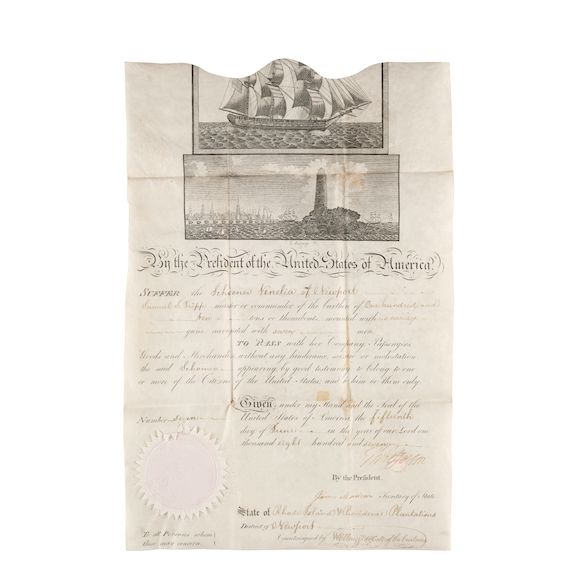 By the President of the United States of America,
SUFFER the Schooner of Newport
Samuel master or commander of the burthen of One hundred and
tons or thereabouts, mounted with
guns navigated with seven men
TO PASS with her Company, Passengers
Goods and Merchandize without any hinderance, seizure or molestation
the said Schooner appearing by good testimony to belong to one
or more of the Citizens of the United States, and to him or them only.
Given under my Hand and the Seal of the
United States of America the fifteenth
day of June in the year of our Lord one
thousand eight hundred and
Number
Th Jefferson
By the President
James Madison Secretary of State
State of Rhode Island & Providence Plantations
District of Newport
Countersigned by
To all Persons whom
these may concern.